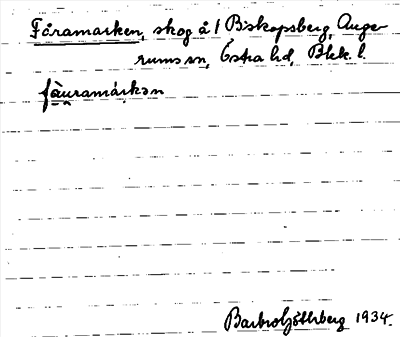 Fåramarken, skog å 1 Biskopsberg, Auge-
rums sn, Östra hd, Blek. l.
fåuramárkən
Barbro Göthberg 1934.